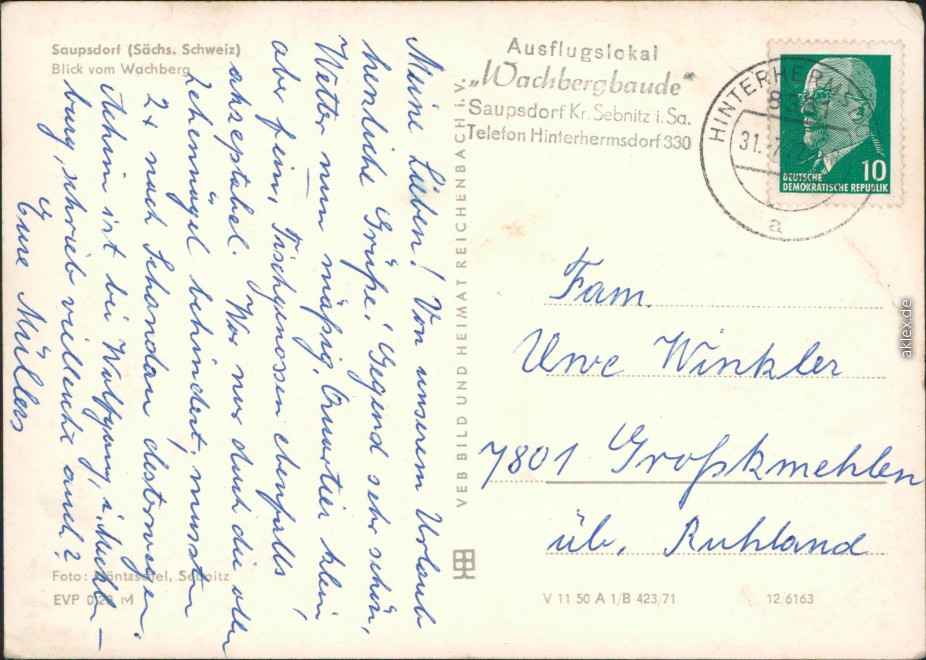 Saupsdorf (Sächs. Schweiz)
Blick vom Wachberg
Meine Lieben! Von unserem Urlaub
herzliche Grüße! Gegend sehr schön,
Wetter nun mäßig, Quartier klein
aber fein, Tischgenossen ebenfalls
akzeptabel. War nur durch die ollen
Zehennägel behindert, mussten
2x nach Schandau deswegen.
Achim ist bei Wolfgang, i.
burg, schrieb vielleicht auch?
Eure Müllers
Foto: Häntzschel, Sebnitz
EVP 0,20 M
VEB BILD UND HEIMAT REICHENBACH i. V.
Ausflugslokal
„Wachbergbaude"
Saupsdorf Kr. Sebnitz i. Sa.
Telefon Hinterhermsdorf 330
31.
a
10
DEUTSCHE
DEMOKRATISCHE REPUBLIK
Fam.
Uwe Winkler
7801 Großkmehlen
üb. Ruhland
V 11 50 A 1/B 423/71
12/6163
aklex.de